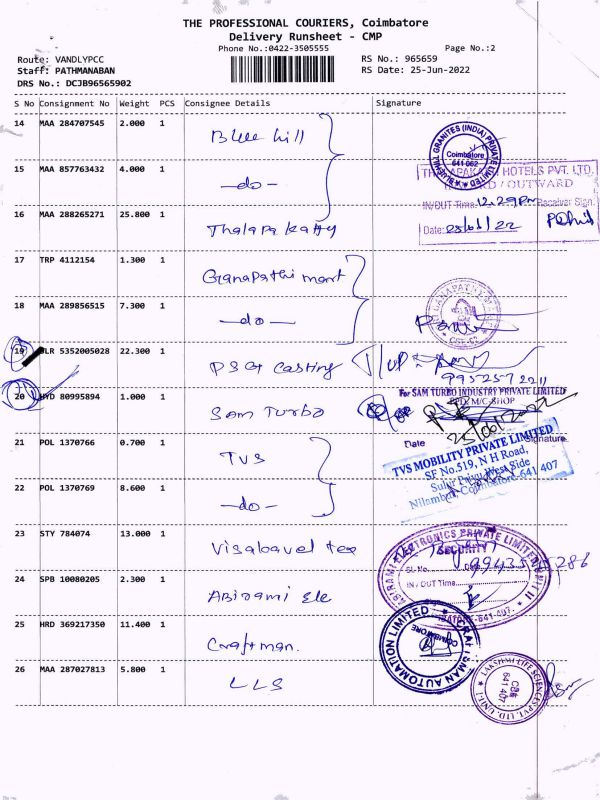 THE PROFESSIONAL COURIERS, Coimbatore
Delivery Runsheet - CMP
Phone No.:0422-3505555
Page No.:2
Route: VANDLYPCC
RS No.: 965659
Staff: PATHMANABAN
RS Date: 25-Jun-2022
DRS No.: DCJB96565902
S No Consignment No Weight PCS Consignee Details Signature
14 MAA 284707545 2.000 1 Blue hill
BLUEHILL GRANITES (INDIA) PRIVATE LIMITED
Coimbatore
641 062
15 MAA 857763432 4.000 1 -do-
HOTELS PVT. LTD.
/ OUTWARD
IN/OUT Time: 12.29Pm Receiver Sign.
16 MAA 288265271 25.800 1 Thalapa katty
Date: 25/06/22
17 TRP 4112154 1.300 1 Ganapathi mart
18 MAA 289856515 7.300 1 -do-
19 BLR 5352005028 22.300 1 PSG casting
9952572211
20 HYD 80995894 1.000 1 Sam Turbo
For SAM TURBO INDUSTRY PRIVATE LIMITED
M/C SHOP
25/06/2022
Date Signature
21 POL 1370766 0.700 1 TVS
TVS MOBILITY PRIVATE LIMITED
SF No.519, N H Road,
Sulur Privu West Side
Nilambur, Coimbatore-641 407
22 POL 1370769 8.600 1 -do-
23 STY 784074 13.000 1 Visabavel tex
ABIRAMI ELECTRONICS PRIVATE LIMITED UNIT II
SECURITY
SL. No. Date
IN / OUT Time
24 SPB 10080205 2.300 1 Abirami Ele
25 HRD 369217350 11.400 1 Craftman.
CRAFTSMAN AUTOMATION LIMITED
COIMBATORE
26 MAA 287027813 5.800 1 LLS
LAKSHMI LIFE SCIENCES PVT. LTD. UNIT-I
CBE
641 407